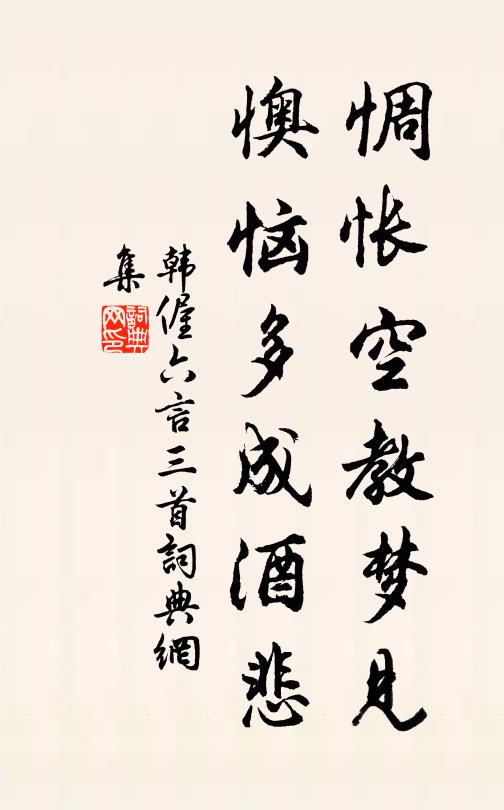 惆怅空教梦见
懊恼多成酒悲
韩偓六言三首詞典網
集
詞典网印